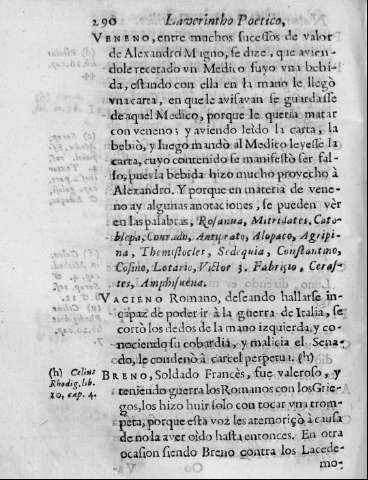 290 Laverintho Poetico,
VENENO, entre muchos sucessos de valor
de Alexandro Magno, se dize, que avien-
dole recetado vn Medico suyo vna bebi-
da, estando con ella en la mano le llegò
vna carta, en que le avisavan se guardasse
de aquel Medico, porque le queria matar
con veneno; y aviendo leìdo la carta, la
bebiò, y luego mandò al Medico leyesse la
carta, cuyo contenido se manifestò ser fal-
so, pues la bebida hizo mucho provecho à
Alexandro. Y porque en materia de vene-
no ay algunas anotaciones, se pueden vèr
en las palabras, Rosanua, Mitridates, Cato-
blepa, Conrado, Antyrato, Alopaco, Agripi-
na, Themistocles, Sedequia, Constantino,
Cosino, Lotario, Victor 3. Fabrisio, Ceras-
tes, Amphisuena.
VACIENO Romano, deseando hallarse in-
capaz de poder ir à la guerra de Italia, se
cortò los dedos de la mano izquierda, y co-
nociendo su cobardia, y malicia el Sena-
do, le condenò à carcel perpetua. (h)
(h) Celius
Rhodig. lib.
10, cap. 4.
BRENO, Soldado Francès, fue valeroso, y
teniendo guerra los Romanos con los Grie-
gos, los hizo huir solo con tocar vna trom-
peta, porque esta voz les atemoriçò à causa
de no la aver oìdo hasta entonces. En otra
ocasion siendo Breno contra los Lacede-
mo-